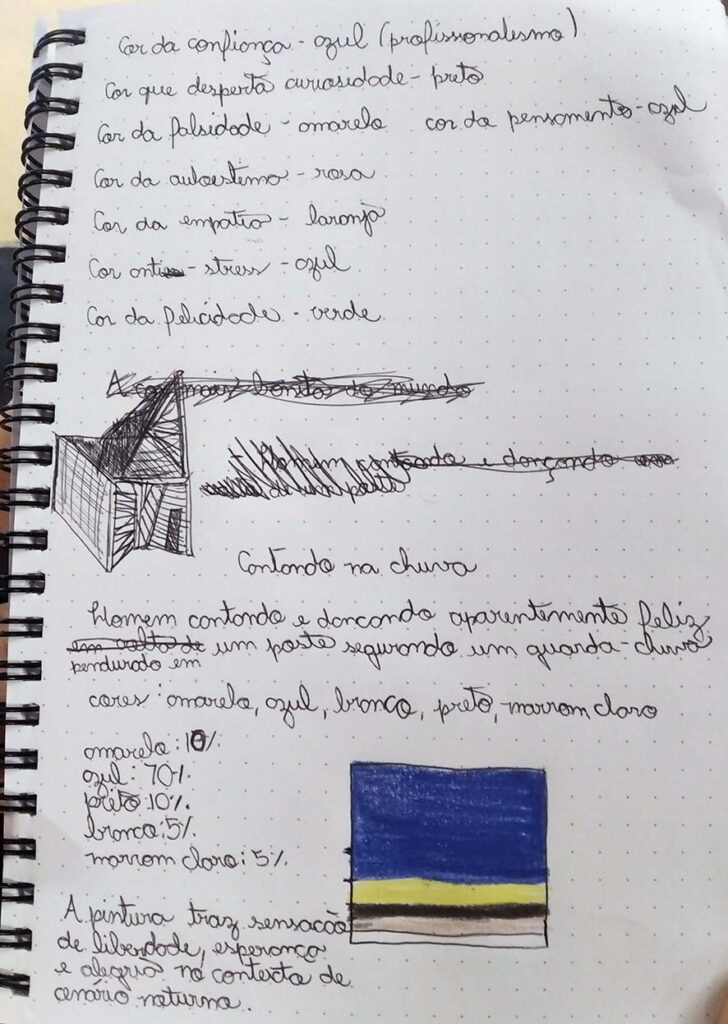 Cor da confiança - azul (profissionalismo)
Cor que desperta curiosidade - preto
Cor da falsidade - amarelo cor do pensamento - azul
Cor da autoestima - rosa
Cor da empatia - laranja
Cor anti - stress - azul
Cor da felicidade - verde
A cor mais bonita do mundo
Homem cantando e dançando
de um poste
Cantando na chuva
Homem cantando e dancando aparentemente feliz
em volta de um poste segurando um guarda-chuva
pendurado em
cores: amarelo, azul, branco, preto, marrom claro
amarelo: 10%
azul: 70%
preto: 10%
branco: 5%
marrom claro: 5%
A pintura traz sensacão
de liberdade, esperança
e alegria no contexto de
cenário noturno.